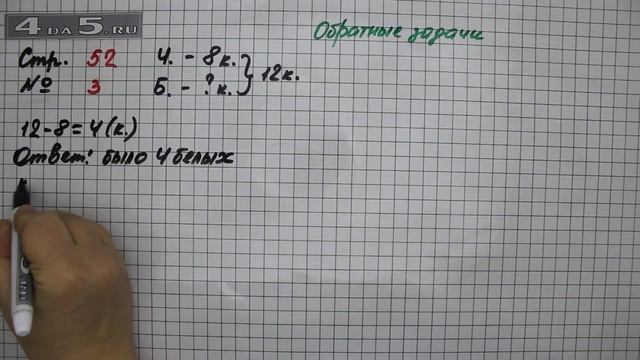 4DA5.RU
Обратные задачи
Стр. 52 Ч. - 8к.
№ 3 Б. - ?к. } 12к.
12-8=4(к.)
Ответ: было 4 белых